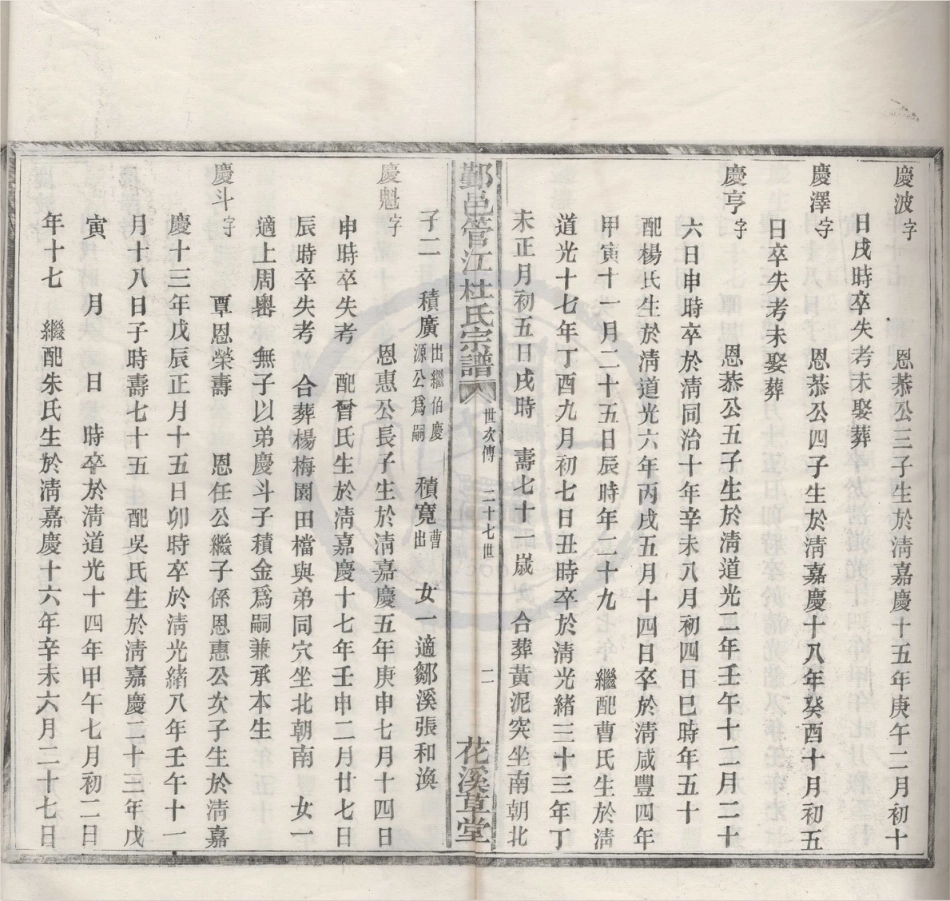 慶波字　恩恭公三子生於清嘉慶十五年庚午二月初十
日戌時卒失考未娶葬
慶澤字　恩恭公四子生於清嘉慶十八年癸酉十月初五
日卒失考未娶葬
慶亨字　恩恭公五子生於清道光二年壬午十二月二十
六日申時卒於清同治十年辛未八月初四日巳時年五十
配楊氏生於清道光六年丙戌五月十四日卒於清咸豐四年
甲寅十一月二十五日辰時年二十九　繼配曹氏生於清
道光十七年丁酉九月初七日丑時卒於清光緒三十三年丁
未正月初五日戌時　壽七十一歲　合葬黃泥突坐南朝北
鄞邑管江杜氏宗譜　世次傳　三十七世　二　花溪草堂
子二　積廣出繼伯慶源公爲嗣　積寬曹出　女一適鄒溪張和渙
慶魁字　恩惠公長子生於清嘉慶五年庚申七月十四日
申時卒失考　配晉氏生於清嘉慶十七年壬申二月廿七日
辰時卒失考　合葬楊梅園田檔與弟同穴坐北朝南　女一
適上周嶴　無子以弟慶斗子積金爲嗣兼承本生
慶斗字　覃恩榮壽　恩任公繼子係恩惠公次子生於清嘉
慶十三年戊辰正月十五日卯時卒於清光緒八年壬午十一
月十八日子時壽七十五　配吳氏生於清嘉慶二十三年戊
寅　月　日　時卒於清道光十四年甲午七月初二日
年十七　繼配朱氏生於清嘉慶十六年辛未六月二十七日